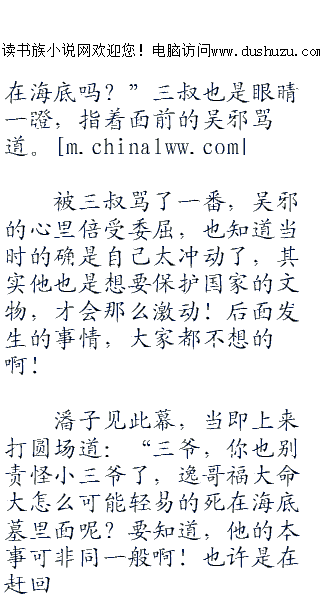 读书族小说网欢迎您！电脑访问www.dushuzu.com
在海底吗？”三叔也是眼睛
一瞪，指着面前的吴邪骂
道。[m.chinalww.com]
被三叔骂了一番，吴邪
的心里倍受委屈，也知道当
时的确是自己太冲动了，其
实他也是想要保护国家的文
物，才会那么激动！后面发
生的事情，大家都不想的
啊！
潘子见此幕，当即上来
打圆场道：“三爷，你也别
责怪小三爷了，逸哥福大命
大怎么可能轻易的死在海底
墓里面呢？要知道，他的本
事可非同一般啊！也许是在
赶回